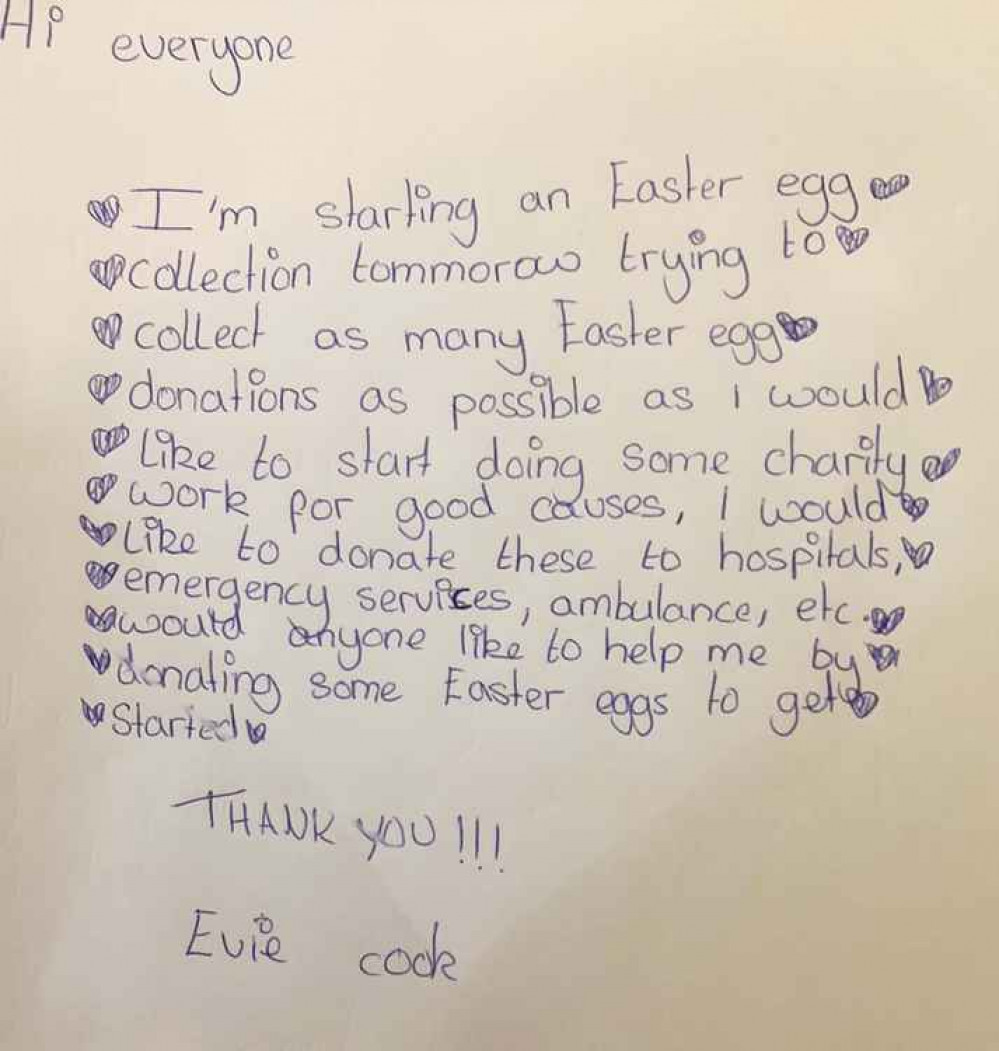 Hi everyone
I'm starting an Easter egg
collection tommorow trying to
collect as many Easter egg
donations as possible as i would
like to start doing some charity
work for good causes, I would
like to donate these to hospitals,
emergency services, ambulance, etc.
would anyone like to help me by
donating some Easter eggs to get
started
THANK YOU !!!
Evie cook